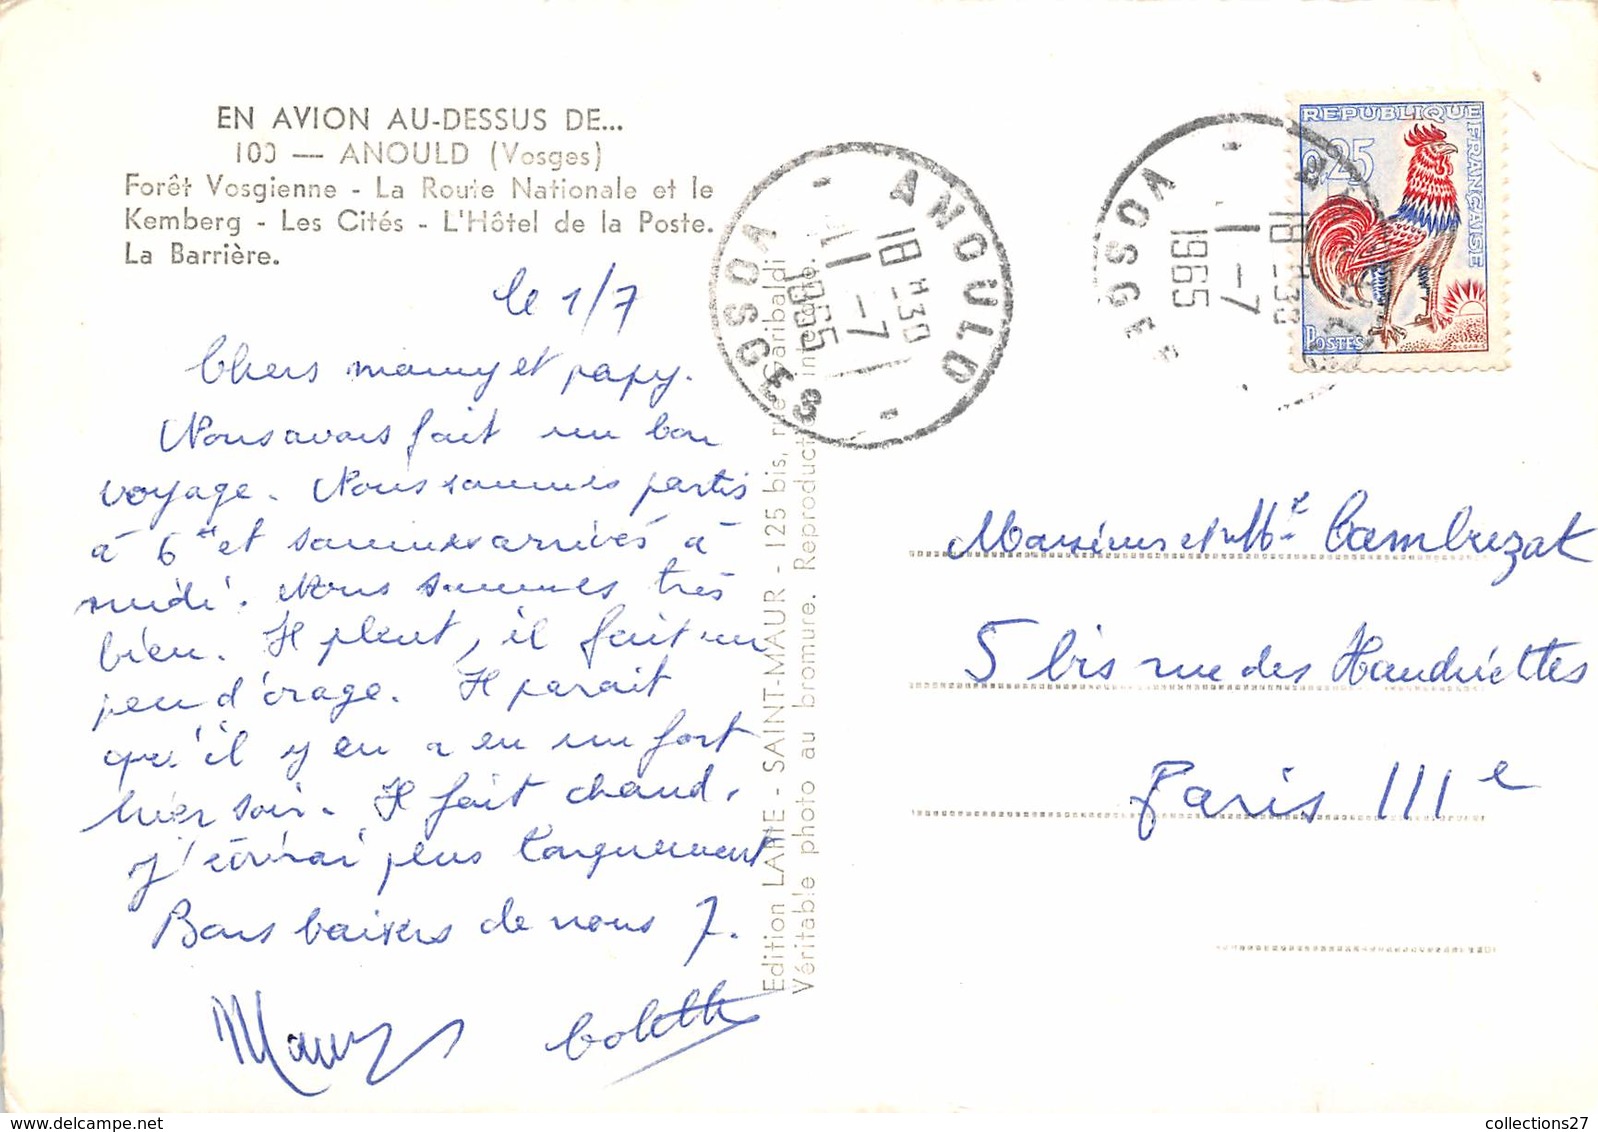 EN AVION AU-DESSUS DE...
100 — ANOULD (Vosges)
Forêt Vosgienne - La Route Nationale et le
Kemberg - Les Cités - L'Hôtel de la Poste.
La Barrière.
le 1/7
Chers mamy et papy.
Nous avons fait un bon
voyage. Nous sommes partis
à 6 et sommes arrivés à
midi. Nous sommes très
bien. Il pleut, il fait un
peu d'orage. Il parait
qu'il y en a eu un fort
hier soir. Il fait chaud.
j'écrirai plus longuement
Bons baisers de nous 7.
Colette
Edition LAPIE - SAINT-MAUR - 125 bis, rue Garibaldi
Véritable photo au bromure. Reproduction interdite.
ANOULD
18 H 30
1 -7
1965
VOSGES
REPUBLIQUE FRANÇAISE
0,25
POSTES
VOSGES
18 H 30
1 -7
1965
Monsieur et Me Cambrezat
5 bis rue des Haudriettes
Paris IIIe
collections27